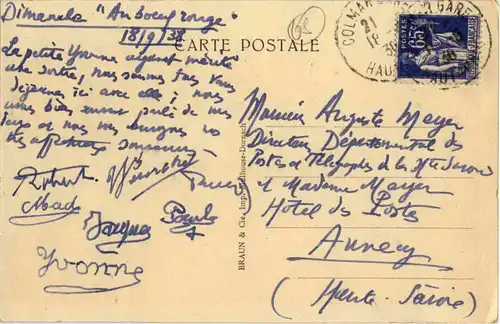 Dimanche "Au boeuf rouge"
18/9/38
La petite Yvonne ayant mérité
une sortie, nous sommes tous venus
déjeuner ici avec elle ; nous
avons bien parlé de vous
tous et nous vous envoyons nos
affectueux souvenirs
Robert
Mad
Jacques Paule
Yvonne
CARTE POSTALE
BRAUN & Cie, Imp., Mulhouse-Dornach
COLMAR GARE
21
18
38
HAUT-RHIN
POSTES
65c
Monsieur Auguste Meyer
Directeur Départemental des
Postes et Télégraphes de la Hte Savoie
et Madame Meyer
Hotel des Postes
Annecy
(Haute-Savoie)